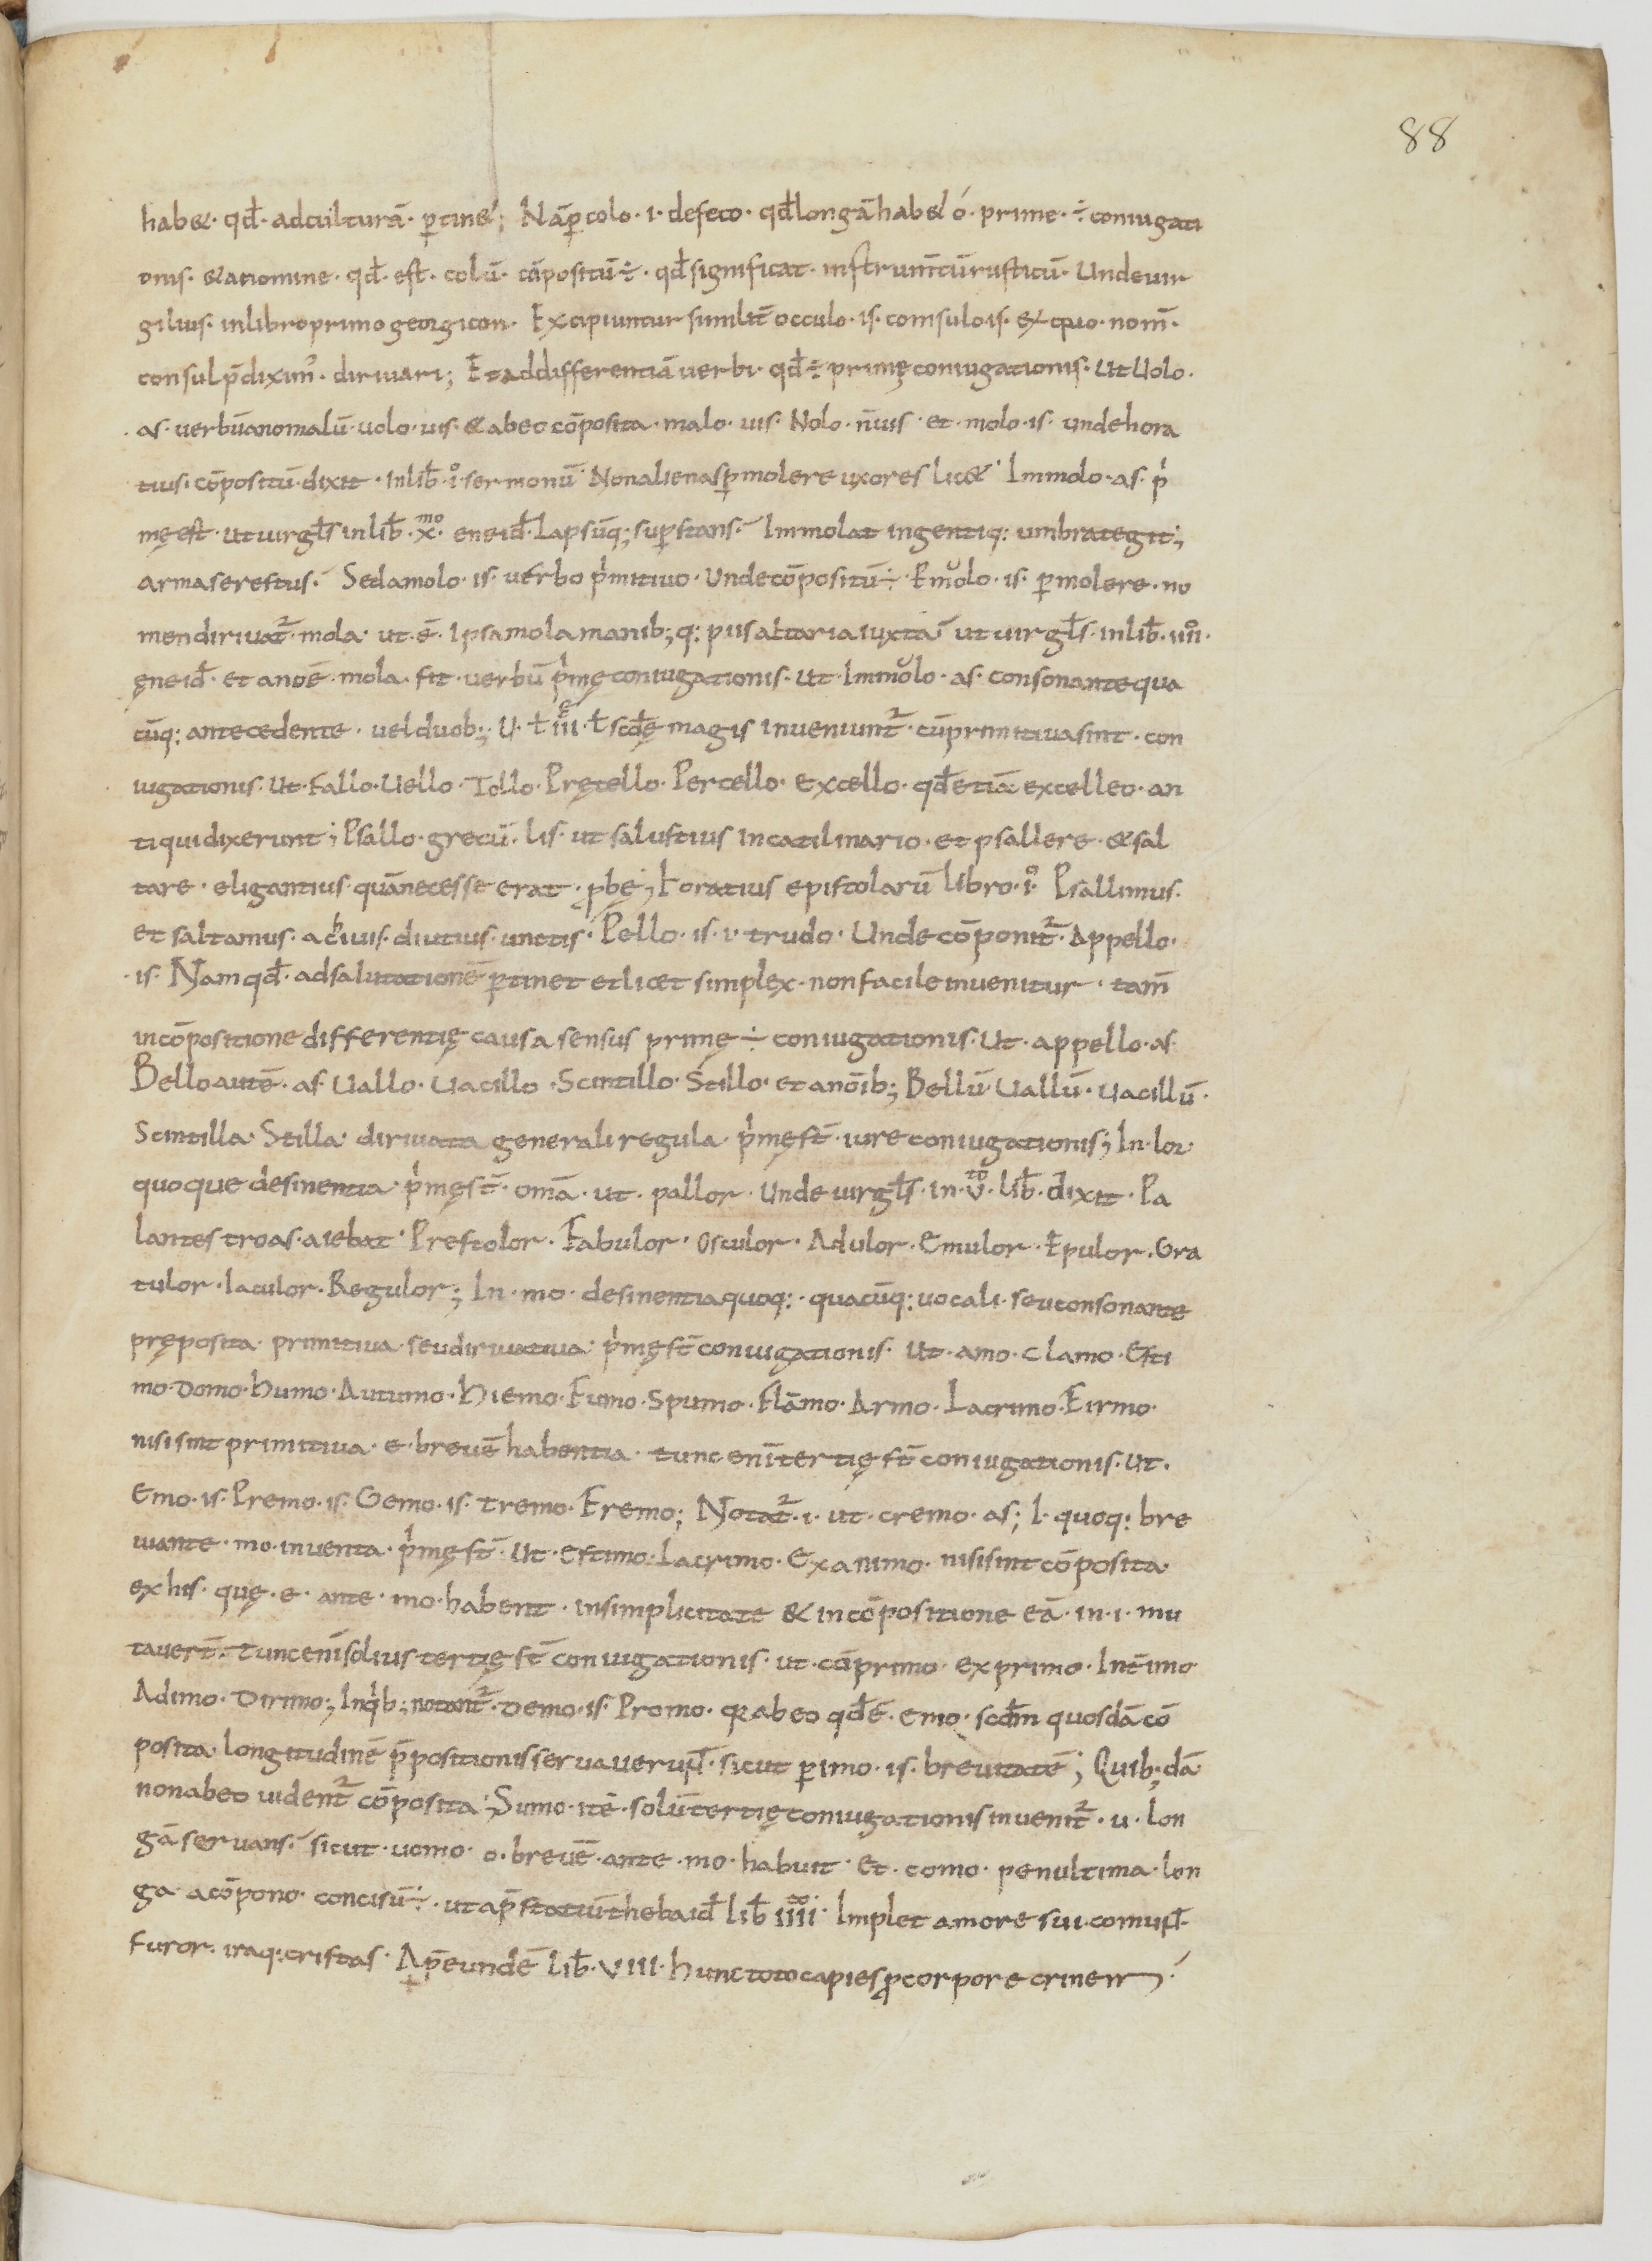 88
hab&· qd̄· adculturā· ꝑtin&; Nāꝑcolo· i· defeco· qd̄longāhab& ó· prime· ÷ coniugati
onis· &anomine· qd̄· est· colū· cōpositū÷· qd̄significat· instrum̄tūrusticū· Undeuir
gilius· inlibroprimogeorgicon· Excipiuntur similit̄ occulo· is· consulois· exquo· nom̄·
consulp̄diximꝰ· diriuari; Etaddifferentiāuerbi· qd̄÷ primęconiugationis· utUolo·
·as· uerbūanomalū· uolo· uis· &abeocōposita· malo· uis· Nolo· n̄uis· et· molo· is· undehora
tius· cōpositū· dixit· inlib̄· i̊· sermonū· Nonalienasꝑmolere uxores lic&· Immolo· as· p̍
męest· utuirgl̄s inlib̄· x̊ᵐᵒ· eneid̄· Lapsūq; suꝑstans· Immolat ingentiq: umbrategit;
armaserestus· Sedamolo· is· uerbo p̍mitiuo· Undecōpositū÷· Emolo· is· ꝑmolere· no
mendiriuat᷑· mola· ut· ē· Ipsamolamanib; q: piisaltariaiuxta· ut uirgl̄s· inlib̄· iiii̊·
ęneid̄· et anoē· mola· fit· uerbū p̍męconiugationis· Ut· Immolo· as· consonantequa
cūq: antecedente· uelduob;· U· ł iii· ł scd̄ę magis inueniunt᷑· cūprimitiuasint· con
iugationis· Ut· Fallo· Uello· Tollo· Pręcello· Percello· Excello· qd̄etiā excelleo· an
tiquidixerunt; Psallo· grecū· lis· ut salustius incatilinario· et psallere· &sal
tare· eligantius· quānecesse erat· ꝓbę; horatius epistolarū libro· i̊· Psallimus·
et saltamus· achiuis· diutius· unctis· Pello· is· i· trudo· Unde cōponit᷑· Appello·
·is· Namqd̄· adsalutationē ꝑtinet etlicet simplex· nonfacileinuenitur· tam̄
incōpositione differentię causa sensus primę ÷ coniugationis· Ut· appello· as
Belloautē· as· Uallo· Uacillo· Scintillo· Stillo· et anoīb; Bellū· Uallū· Uacillū·
Scintilla· Stilla· diriuata generaliregula· p̍męst̄· iureconiugationis; In· lor·
quoque desinentia· p̍męst̄· omā· ut· pallor· Unde uirgl̄s· in· v̄ᵗᵒ· lib̄· dixit· Pa
lantes troas· aiebat· Prestolor· Fabulor· Osculor· Adulor· Emulor· Epulor· Gra
tulor· Iaculor· Regulor; In· mo· desinentiaquoq:· quacūq: uocali· seuconsonante
pręposita· primitiua· seudiriuatiua· p̍męst̄coniugationis· Ut· amo· clamo· Esti
mo· Domo· humo· Autumo· hiemo· Fumo· Spumo· Flāmo· Armo· Lacrimo· Firmo·
nisisint primitiua· e· breuē habentia· tunc enī tertię st̄ coniugationis· Ut·
Emo· is· Premo· is· Gemo· is· tremo· Fremo; Notat᷑· i· ut· cremo· as; I· quoq: bre
uiante· mo· inuenta· p̍męst̄· Ut· Estimo· Lacrimo· Exanimo· nisisint cōposita·
exhis· quę· e· ante· mo· habent· insimplicitate & incōpositione eā· in· i· mu
tauert̄· Tuncenīsolius tertię st̄ coniugationis· ut· cōprimo· exprimo· Intimo·
Adimo· Dirimo; Inq̍b; notant᷑· Demo· is· Promo· Qa abeo qd̄ē· emo· scd̄m quosdā cō
posita· longitudinē p̄positionisseruauerunt· sicut ꝑimo· is· breuitatē; Quib;dā
nonabeo uident᷑ cōposita; Sumo· itē· solūtertięconiugationisinuenit᷑· u· lon
gāseruans· sicut· uomo· o· breuē· ante· mo· habuit· Et· como· penultima· lon
ga· acōpono· concisū÷· utap̄statiūthebaid̄ lib̄ iiii̊· Implet amore sui· comunt·
Furor· iraq: cristas· Ap̄eundē lib̄· VIII· hunctotocapiesꝓcorpore crinem·